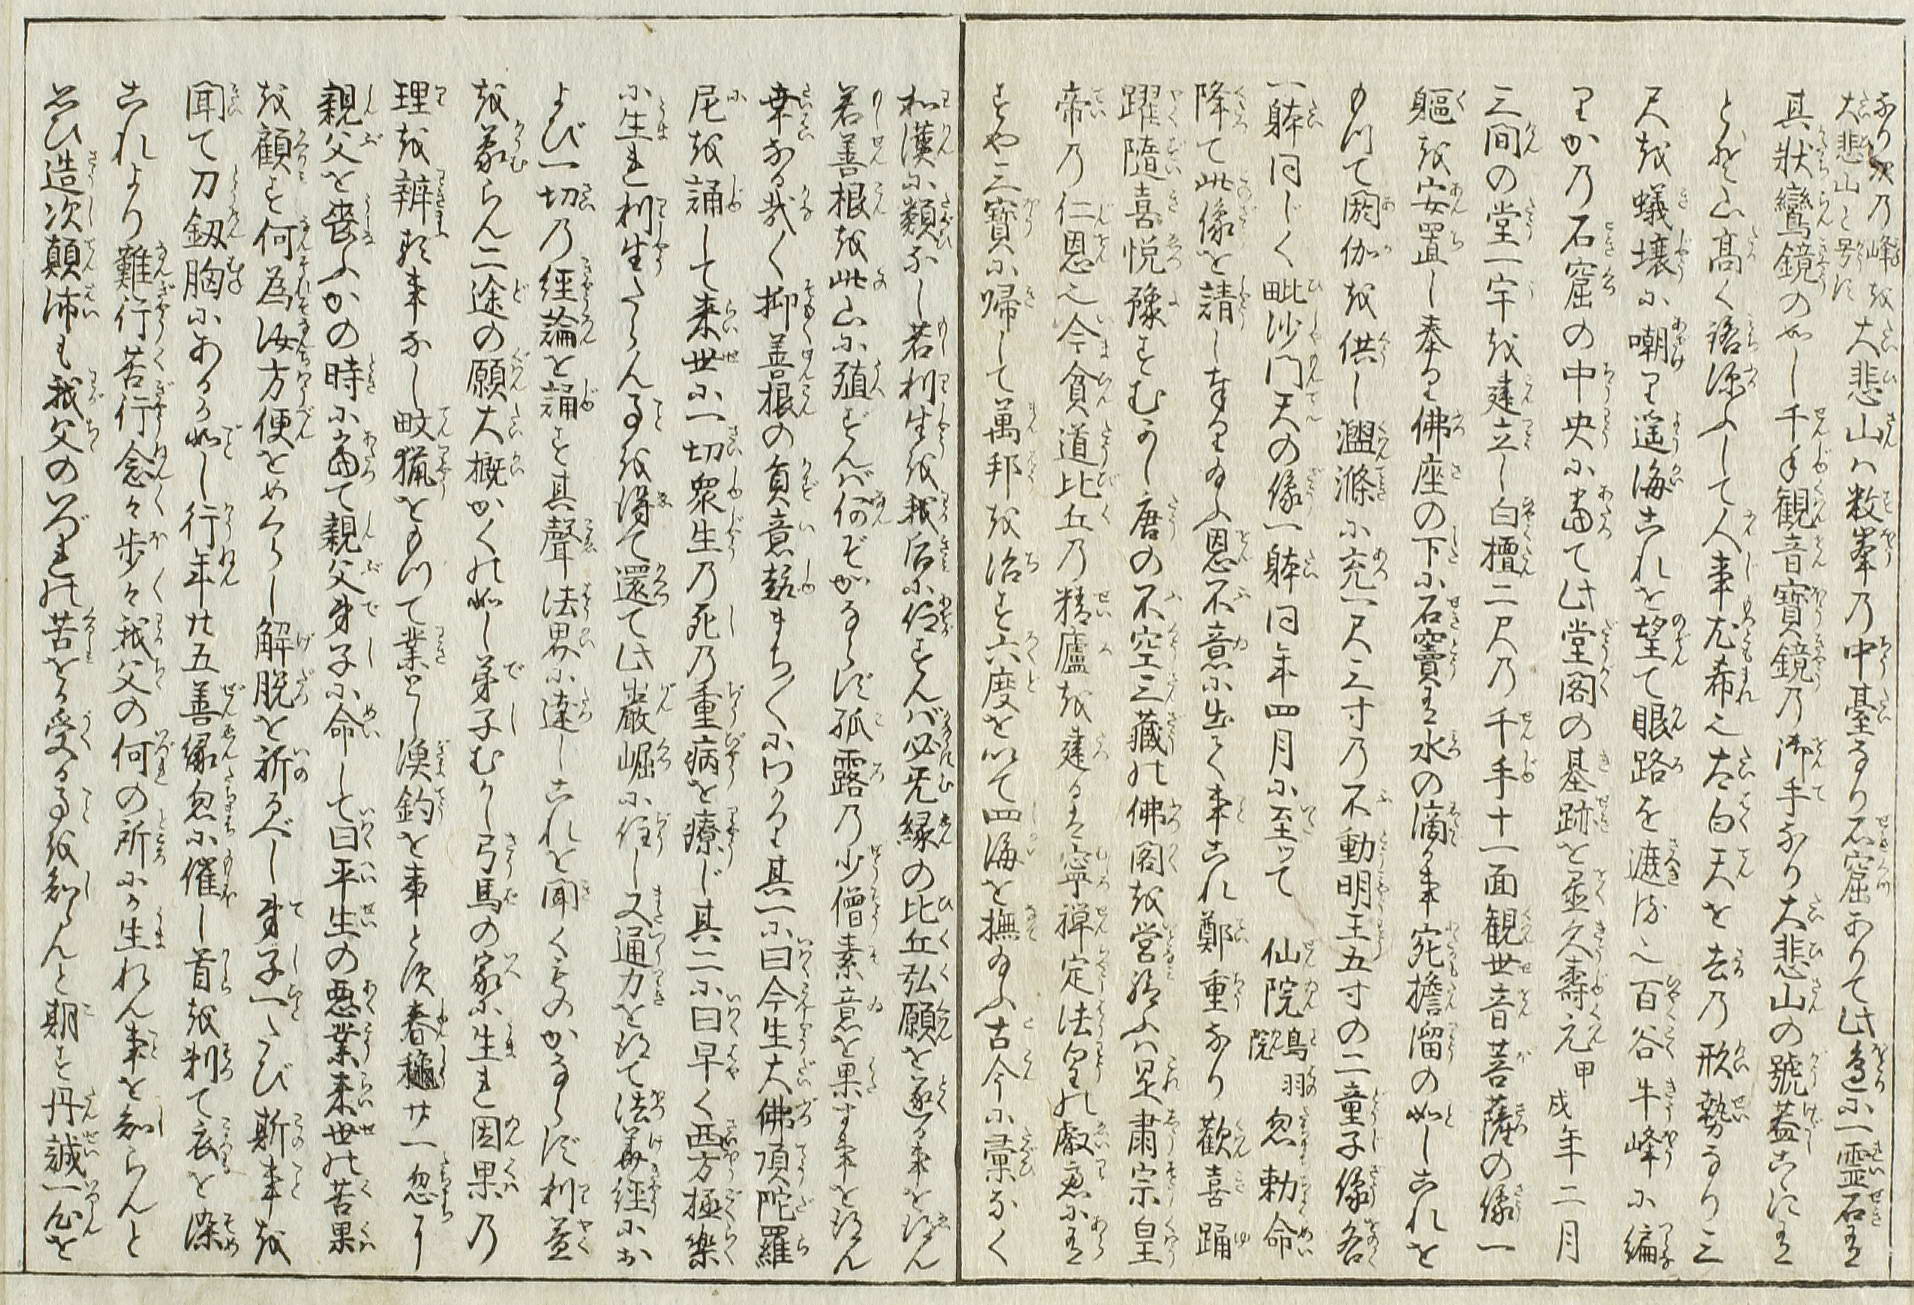 なり次乃峰を大悲山は数峯乃中臺なり石窟ありて此邊に一霊石を
大悲山と号に
其状鸞鏡の如し千手観音寶鏡乃御手なり大悲山の號蓋こゝによる
とぞ山高く深ふして人事尤希也太白天を去乃形勢なり三
尺を蟻壌に嘲り遥海これを望て眼路を遮流也百谷牛峰に編
りかの石窟の中央に當て此堂閣の基跡と並久壽元甲戌年二月
三間の堂一宇を建立し白檀二尺乃千手十一面観世音菩薩の像一
軀を安置し奉る佛座の下に石竇を水の滴る事宛擔溜の如しこれを
もつて閼伽を供し漑滌に充一尺三寸乃不動明王五寸の二童子像各
一躰同じく毗沙門天の像一躰同年四月に至ツて 仙院鳥羽院忽勅命
降て此像を請し奉り給ふ恩不意に出て事これ鄭重なり歡喜踊
躍隨喜悦豫すむかし唐の不空三藏の佛閣を営給ふは是肅宗皇
帝乃仁恩也今貧道比丘乃精廬を建るは寧禅定法皇の叡慮にあら
ずや三寶に歸して萬邦を治す六度を以て四海を撫給ふ古今に彙なく
和漢に類なし若利生を我后に任ずんば必无縁の比丘弘願を遂る事を得ん
若善根を此山に殖ずんば何ぞかならず孤露乃少僧素意を果す事を得ん
幸なる哉く抑善根の員意趣まち〱にわかる其一に曰今生大佛頂陀羅
尼を誦して来世に一切衆生乃死乃重病を療じ其二に曰早く西方極樂
に生れ利生さらん事を得て還て此巌崛に住し又通力を得て法華經にお
よび一切乃經論を誦す其聲法界に達しこれを聞くものかならず利益
を蒙らん二途の願大概かくの如し弟子むかし弓馬の家に生れ因果乃
理を辨ず事なし畋猟をもつて業とし漁釣を事とす春穐廿一忽に
親父を喪ふかの時に當て親父弟子に命して曰平生の悪業来世の苦果
を顧す何為汝方便をめぐらし解脱を祈るべし弟子一たび斯事を
聞て刀釼胸にあるが如し行年廿五善縁忽に催し首を剃て衣を染
これより難行苦行念々歩々我父の何の所にか生れん事を知らんと
思ひ造次顛沛も我父のいづれの苦をか受る事を知らんと期す丹誠一心を